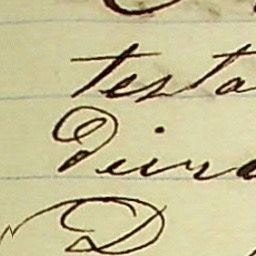 testa
Deira
D